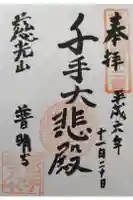 奉拝
平成六年
十一月二十日
千手大悲殿
慈光山
普明寺